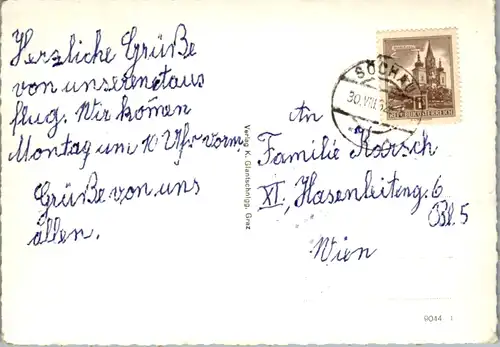 Herzliche Grüße
von unseren
flug. Wir komen
Montag um 10 Uhr vorm.
Grüße von uns
allen.
Verlag K. Glantschnigg, Graz
SÖCHAU
30.VIII.
REPUBLIK ÖSTERREICH
An
Familie Karsch
XI, Hasenleiteng. 6
Bl. 5
Wien
9044